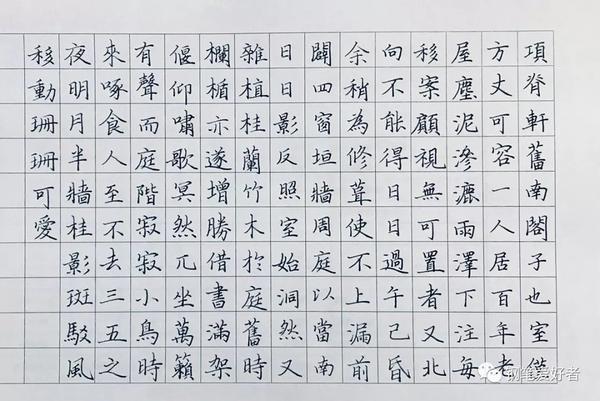 項脊軒舊南閣子也室僅
方丈可容一人居百年老
屋塵泥滲漉雨澤下注每
移案顧視無可置者又北
向不能得日日過午已昏
余稍為修葺使不上漏前
闢四窗垣牆周庭以當南
日日影反照室始洞然又
雜植桂蘭竹木於庭舊時
欄楯亦遂增勝借書滿架
偃仰嘯歌冥然兀坐萬籟
有聲而庭階寂寂小鳥時
來啄食人至不去三五之
夜明月半牆桂影斑駁風
移動珊珊可愛
钢笔爱好者